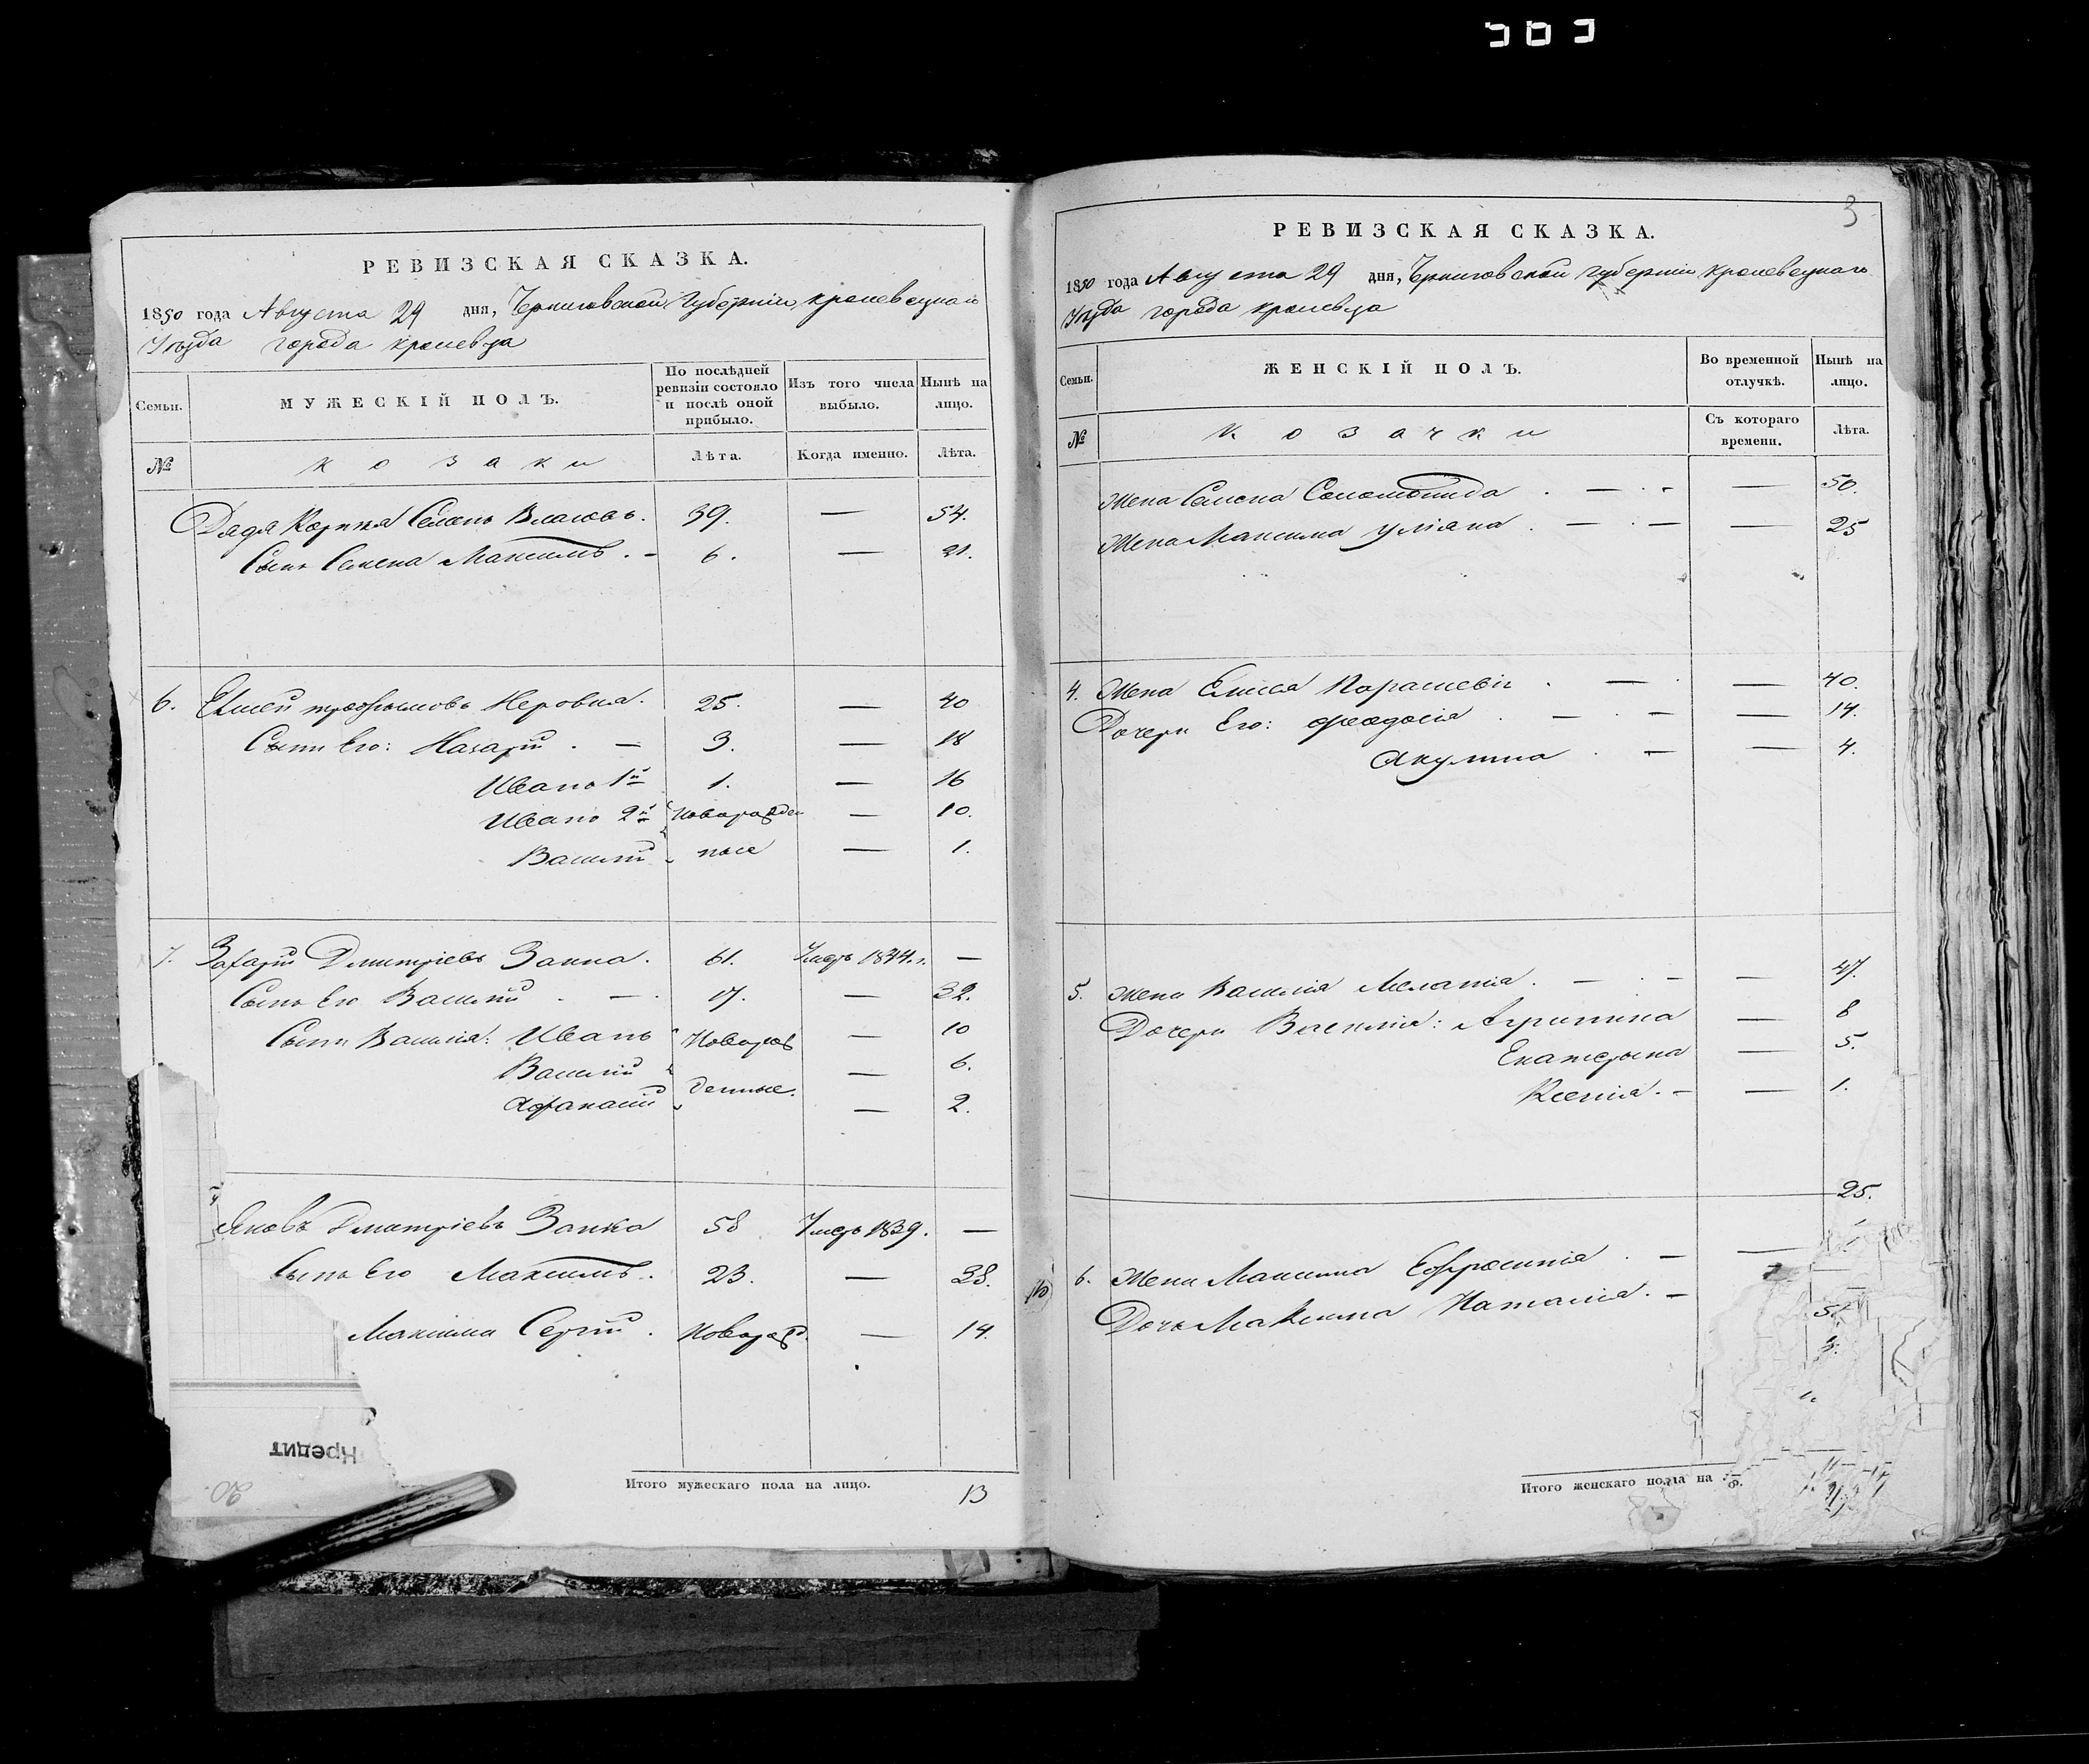 РЕВИЗСКАЯ СКАЗКА.
1850 года Августа 29 дня, Черниговской Губерніи, кролевецкаго
Уѣзда города кролевца
Семьи. МУЖЕСКІЙ ПОЛЪ. По послѣдней ревизіи состояло и послѣ оной прибыло. Изъ того числа выбыло. Нынѣ на лицо.
№ козаки Лѣта. Когда именно. Лѣта.
Дядя Карпка Семенъ Власовъ. 39. — 54.
Сынъ Семена Максимъ. — 6. — 21.
6. Елисей трофымовъ 25. — 40
Сыни Его: Назарій . — 3. — 18
Иванъ 1й 1. — 16
Иванъ 2й Новорожден — 10.
Василій ные — 1.
7. Захарій Дмитріевъ Заика. 61. Умеръ 1844. г. —
Сынъ Его Василій . — . 17. — 32.
Сыни Василія: Иванъ Новорож — 10
Василій — 6.
Афанасій денные. — 2.
Яковъ Дмитріевъ Заика 58 Умеръ 1839. —
Сынъ Его Максимъ. 23. — 38.
Максима Сергій . Новорожд. — 14.
Итого мужескаго пола на лицо. 13
Кредит
20.
3
РЕВИЗСКАЯ СКАЗКА.
1850 года Августа 29 дня, Черниговской Губерніи кролевецкаго
Уѣзда города кролевца
Семьи. ЖЕНСКІЙ ПОЛЪ. Во временной отлучкѣ. Нынѣ на лицо.
№ козачки Съ котораго времени. Лѣта.
Жена Семена Соломонида . — . — — 50.
Жена Максима Уліяна . — . — — 25
4. Жена Елисея Параскевія . — . — 40.
Дочери Его: Феодосія . — . — — 14.
Акулина . — — 4.
5. Жена Василія Мелания . — . — — 47.
Дочери Василія: Агрипина — 8
Екатерына — 5.
Ксенія. — — 1.
25.
6. Жена Максима Ефросинія . — —
Дочь Максима Наталія. —
Итого женскаго пола на